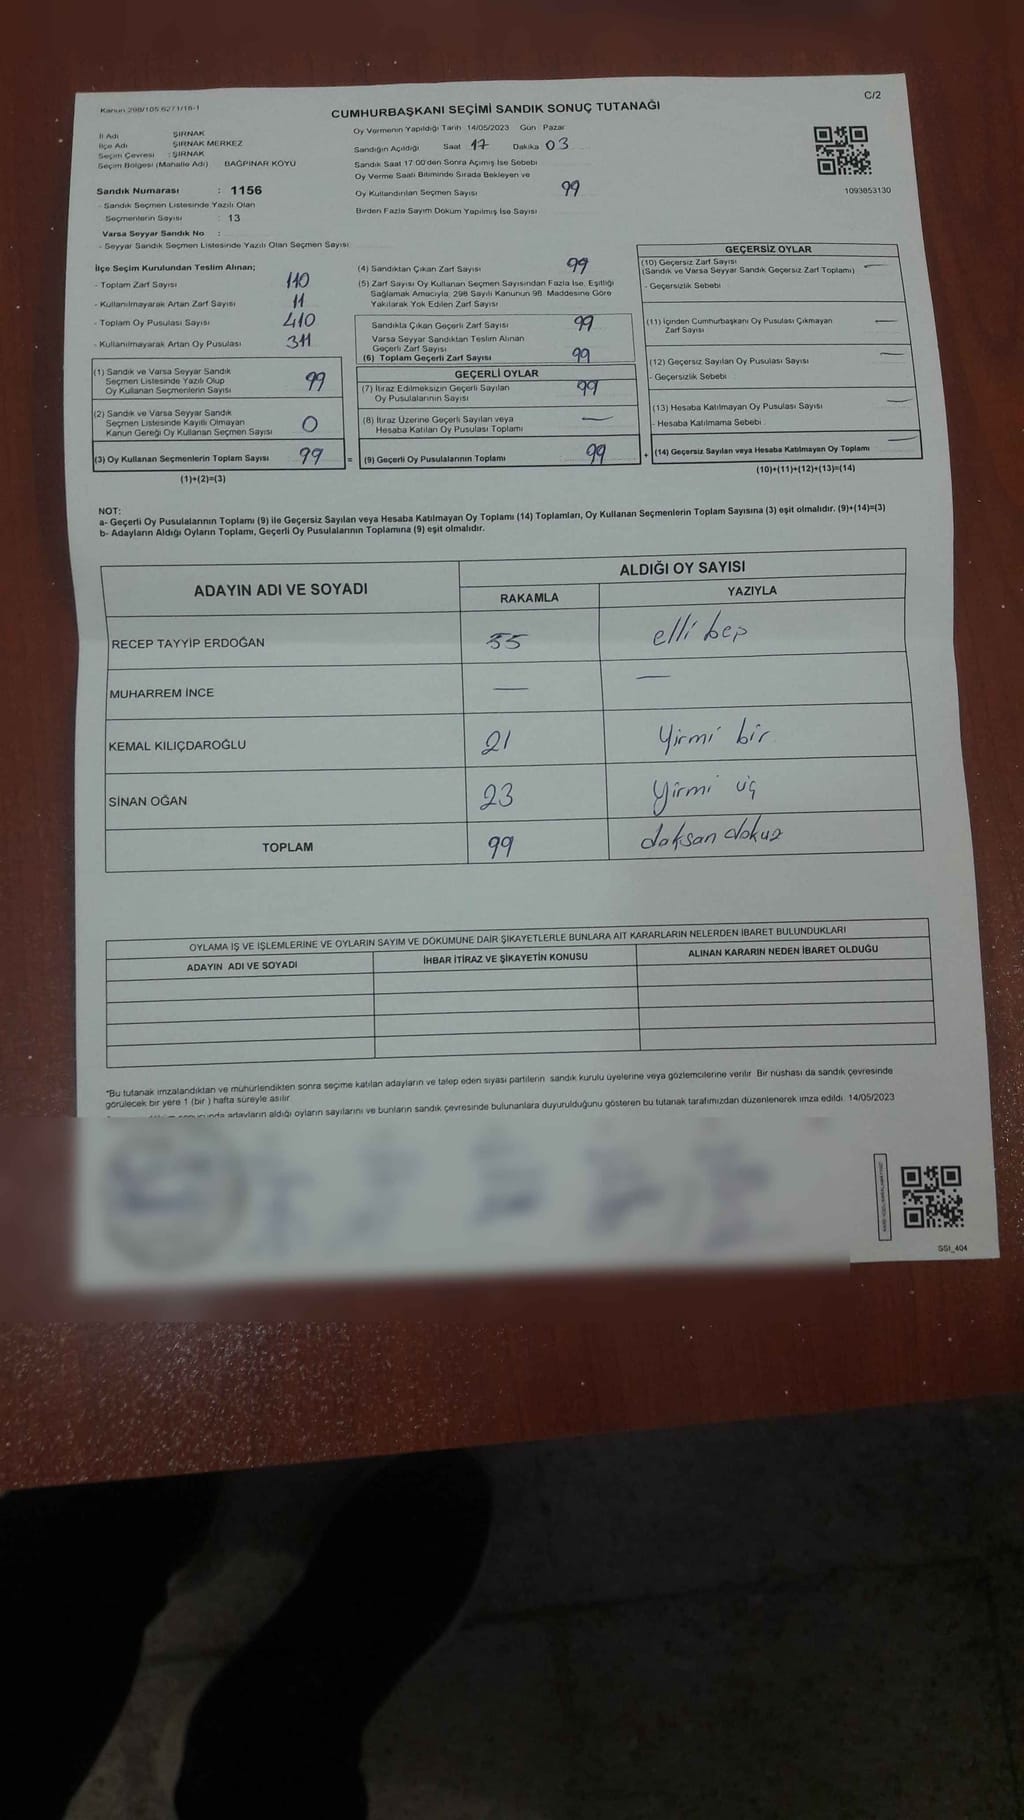 Kanun 298/105 6271/16-1
C/2
CUMHURBAŞKANI SEÇİMİ SANDIK SONUÇ TUTANAĞI
İl Adı : ŞIRNAK
İlçe Adı : ŞIRNAK MERKEZ
Seçim Çevresi : ŞIRNAK
Seçim Bölgesi (Mahalle Adı) BAĞPINAR KÖYÜ
Sandık Numarası : 1156
- Sandık Seçmen Listesinde Yazılı Olan
Seçmenlerin Sayısı : 13
Varsa Seyyar Sandık No :
- Seyyar Sandık Seçmen Listesinde Yazılı Olan Seçmen Sayısı
Oy Vermenin Yapıldığı Tarih 14/05/2023 Gün : Pazar
Sandığın Açıldığı Saat 17 Dakika 03
Sandık Saat 17 00'den Sonra Açılmış İse Sebebi
Oy Verme Saati Bitiminde Sırada Bekleyen ve
Oy Kullandırılan Seçmen Sayısı 99
Birden Fazla Sayım Döküm Yapılmış İse Sayısı
1093853130
İlçe Seçim Kurulundan Teslim Alınan;
- Toplam Zarf Sayısı 110
- Kullanılmayarak Artan Zarf Sayısı 11
- Toplam Oy Pusulası Sayısı 410
- Kullanılmayarak Artan Oy Pusulası 311
(1) Sandık ve Varsa Seyyar Sandık
Seçmen Listesinde Yazılı Olup
Oy Kullanan Seçmenlerin Sayısı 99
(2) Sandık ve Varsa Seyyar Sandık
Seçmen Listesinde Kayıtlı Olmayan
Kanun Gereği Oy Kullanan Seçmen Sayısı 0
(3) Oy Kullanan Seçmenlerin Toplam Sayısı 99
(1)+(2)=(3)
(4) Sandıktan Çıkan Zarf Sayısı 99
(5) Zarf Sayısı Oy Kullanan Seçmen Sayısından Fazla İse, Eşitliği
Sağlamak Amacıyla, 298 Sayılı Kanunun 98. Maddesine Göre
Yakılarak Yok Edilen Zarf Sayısı
Sandıkta Çıkan Geçerli Zarf Sayısı 99
Varsa Seyyar Sandıktan Teslim Alınan
Geçerli Zarf Sayısı
(6) Toplam Geçerli Zarf Sayısı 99
GEÇERLİ OYLAR
(7) İtiraz Edilmeksizin Geçerli Sayılan
Oy Pusulalarının Sayısı 99
(8) İtiraz Üzerine Geçerli Sayılan veya
Hesaba Katılan Oy Pusulası Toplamı —
= (9) Geçerli Oy Pusulalarının Toplamı 99
GEÇERSİZ OYLAR
(10) Geçersiz Zarf Sayısı —
(Sandık ve Varsa Seyyar Sandık Geçersiz Zarf Toplamı)
- Geçersizlik Sebebi
(11) İçinden Cumhurbaşkanı Oy Pusulası Çıkmayan
Zarf Sayısı —
(12) Geçersiz Sayılan Oy Pusulası Sayısı —
- Geçersizlik Sebebi
(13) Hesaba Katılmayan Oy Pusulası Sayısı —
- Hesaba Katılmama Sebebi
+ (14) Geçersiz Sayılan veya Hesaba Katılmayan Oy Toplamı —
(10)+(11)+(12)+(13)=(14)
NOT:
a- Geçerli Oy Pusulalarının Toplamı (9) ile Geçersiz Sayılan veya Hesaba Katılmayan Oy Toplamı (14) Toplamları, Oy Kullanan Seçmenlerin Toplam Sayısına (3) eşit olmalıdır. (9)+(14)=(3)
b- Adayların Aldığı Oyların Toplamı, Geçerli Oy Pusulalarının Toplamına (9) eşit olmalıdır.
ADAYIN ADI VE SOYADI
ALDIĞI OY SAYISI
RAKAMLA YAZIYLA
RECEP TAYYİP ERDOĞAN 55 elli beş
MUHARREM İNCE — —
KEMAL KILIÇDAROĞLU 21 Yirmi bir
SİNAN OĞAN 23 Yirmi üç
TOPLAM 99 doksan dokuz
OYLAMA İŞ VE İŞLEMLERİNE VE OYLARIN SAYIM VE DÖKÜMÜNE DAİR ŞİKAYETLERLE BUNLARA AİT KARARLARIN NELERDEN İBARET BULUNDUKLARI
ADAYIN ADI VE SOYADI İHBAR İTİRAZ VE ŞİKAYETİN KONUSU ALINAN KARARIN NEDEN İBARET OLDUĞU
*Bu tutanak imzalandıktan ve mühürlendikten sonra seçime katılan adayların ve talep eden siyasi partilerin sandık kurulu üyelerine veya gözlemcilerine verilir. Bir nüshası da sandık çevresinde
görülecek bir yere 1 (bir ) hafta süreyle asılır.
adayların aldığı oyların sayılarını ve bunların sandık çevresinde bulunanlara duyurulduğunu gösteren bu tutanak tarafımızdan düzenlenerek imza edildi. 14/05/2023
SSI_404